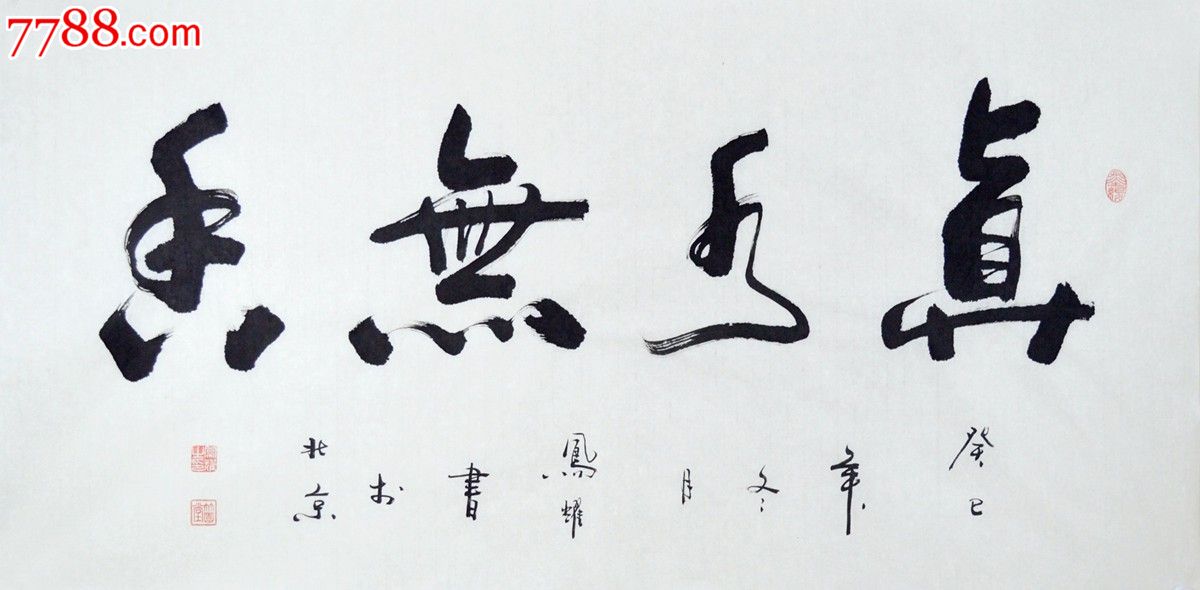 7788.com
真水無香
癸巳年冬月鳳耀書於北京